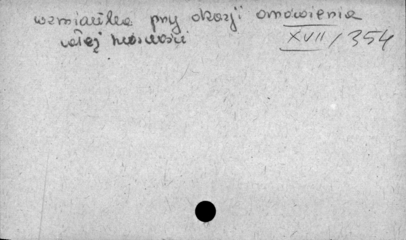 wzmianka przy okazji omówienia
całej twórczości
XVII / 354